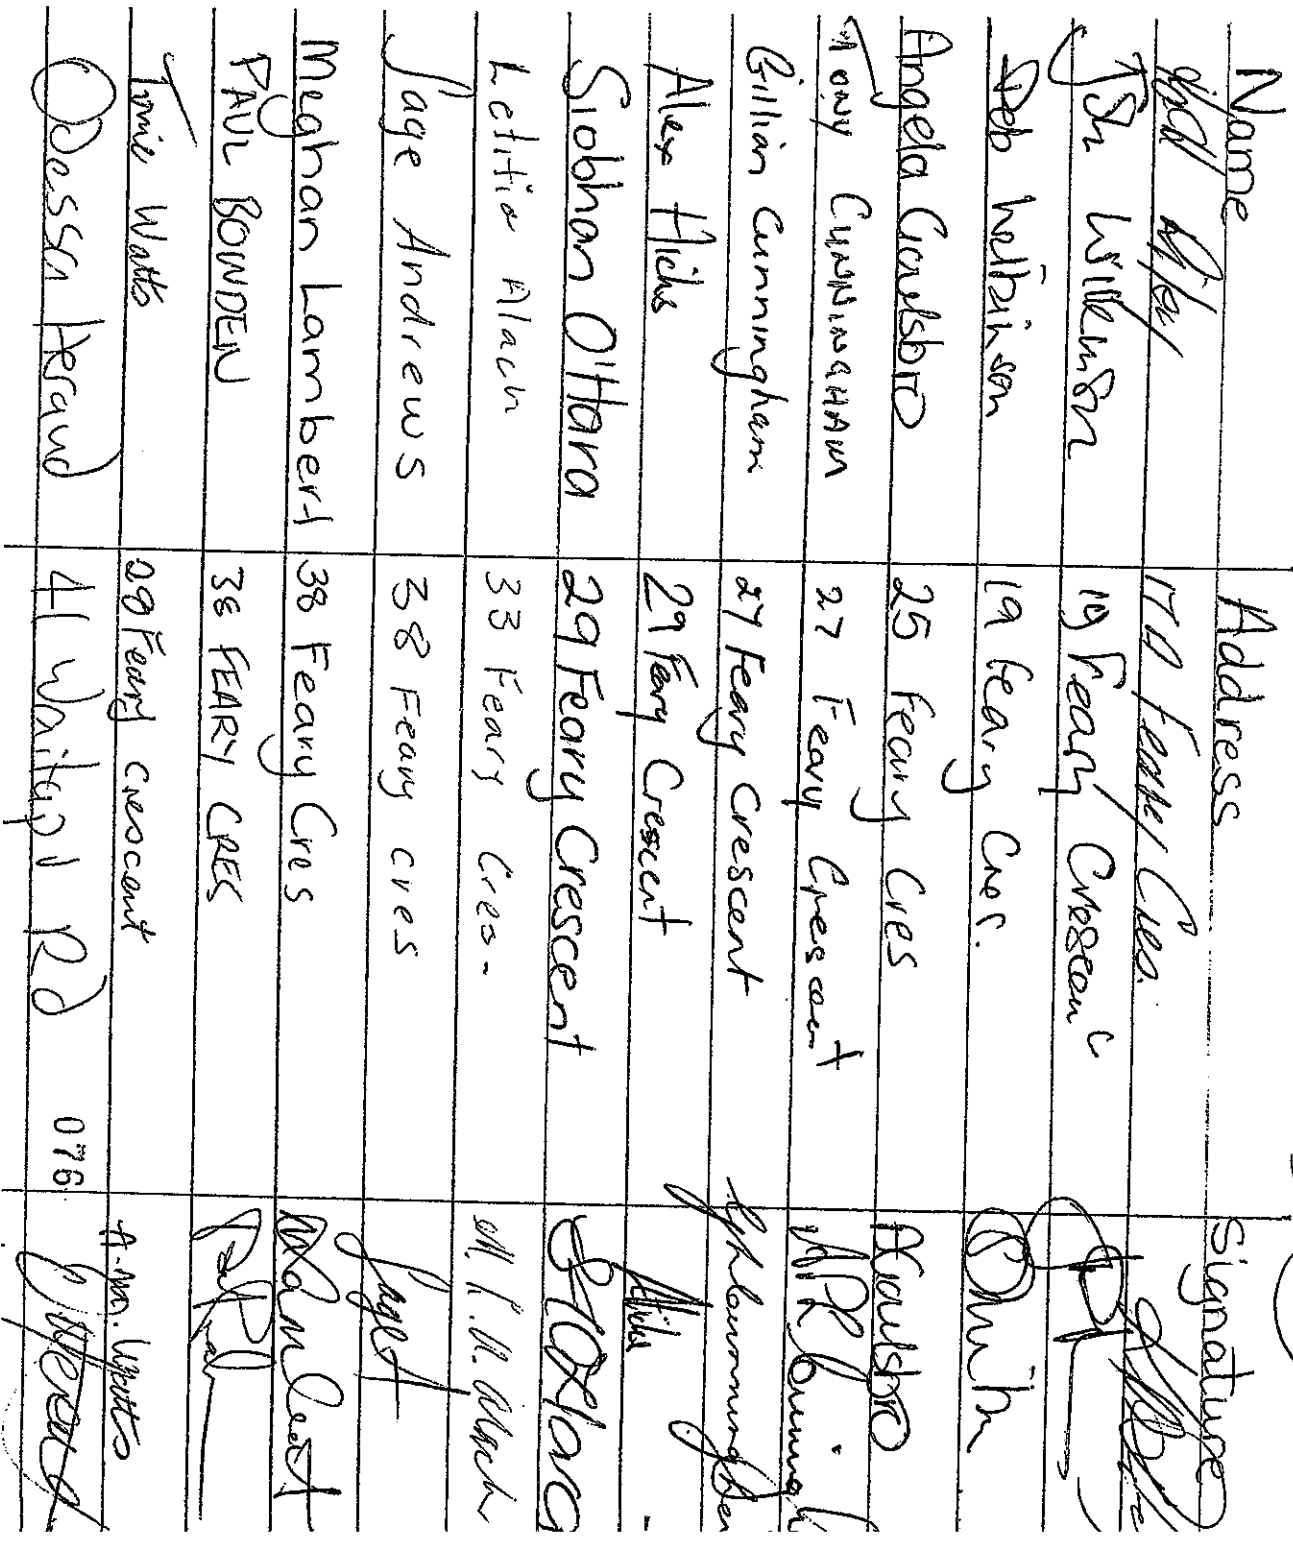 Name Address Signature
17A Feary Cres.
19 Feary Crescent
Deb 19 Feary Cres.
Angela Goulsbro 25 Feary Cres AGoulsbro
Tony CUNNINGHAM 27 Feary Crescent
Gillian Cunningham 27 Feary Crescent
Alex Hicks 29 Feary Crescent AHicks
Siobhan O'Hara 29 Feary Crescent SO'Hara
Letitia Alach 33 Feary Cres.
Sage Andrews 38 Feary cres Sage
Meghan Lambert 38 Feary Cres
PAUL BOWDEN 38 FEARY CRES
Watts 28 Feary Crescent A.M. Watts
Odessa Heraud 41 Rd 076